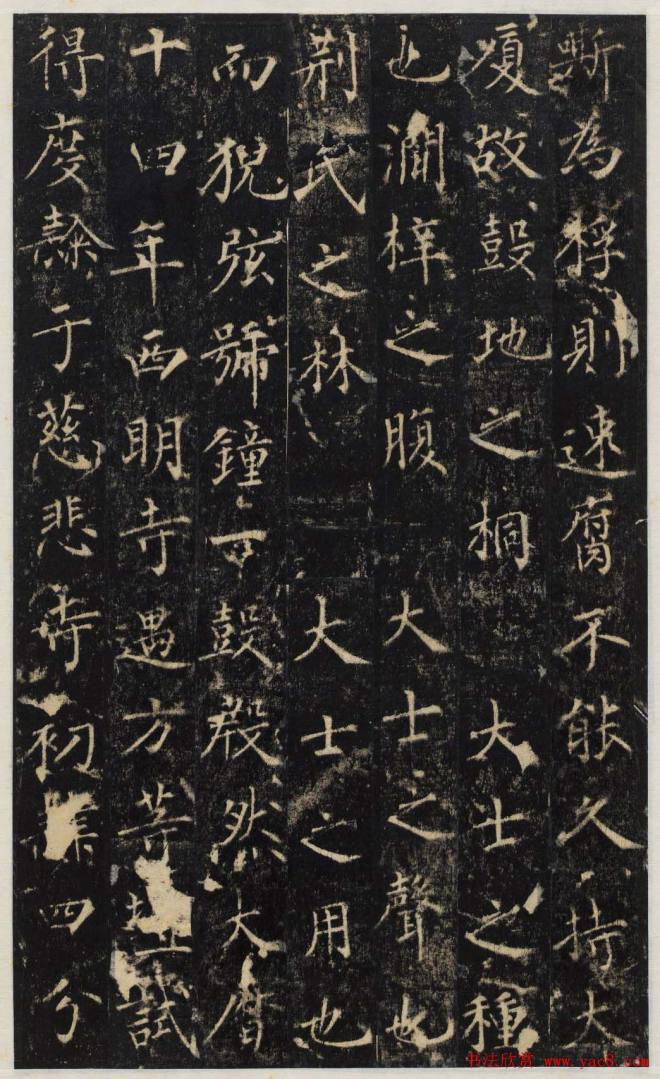 為桴則速腐不能久持大
廈故鼓地之桐 大士之種
也澗梓之腹 大士之聲也
荆氏之林 大士之用也
而猊弦號鐘鼓殷然大曆
十四年西明寺遇方等壇試
得度隸于慈悲寺初四分
书法欣赏 www.yac8.com